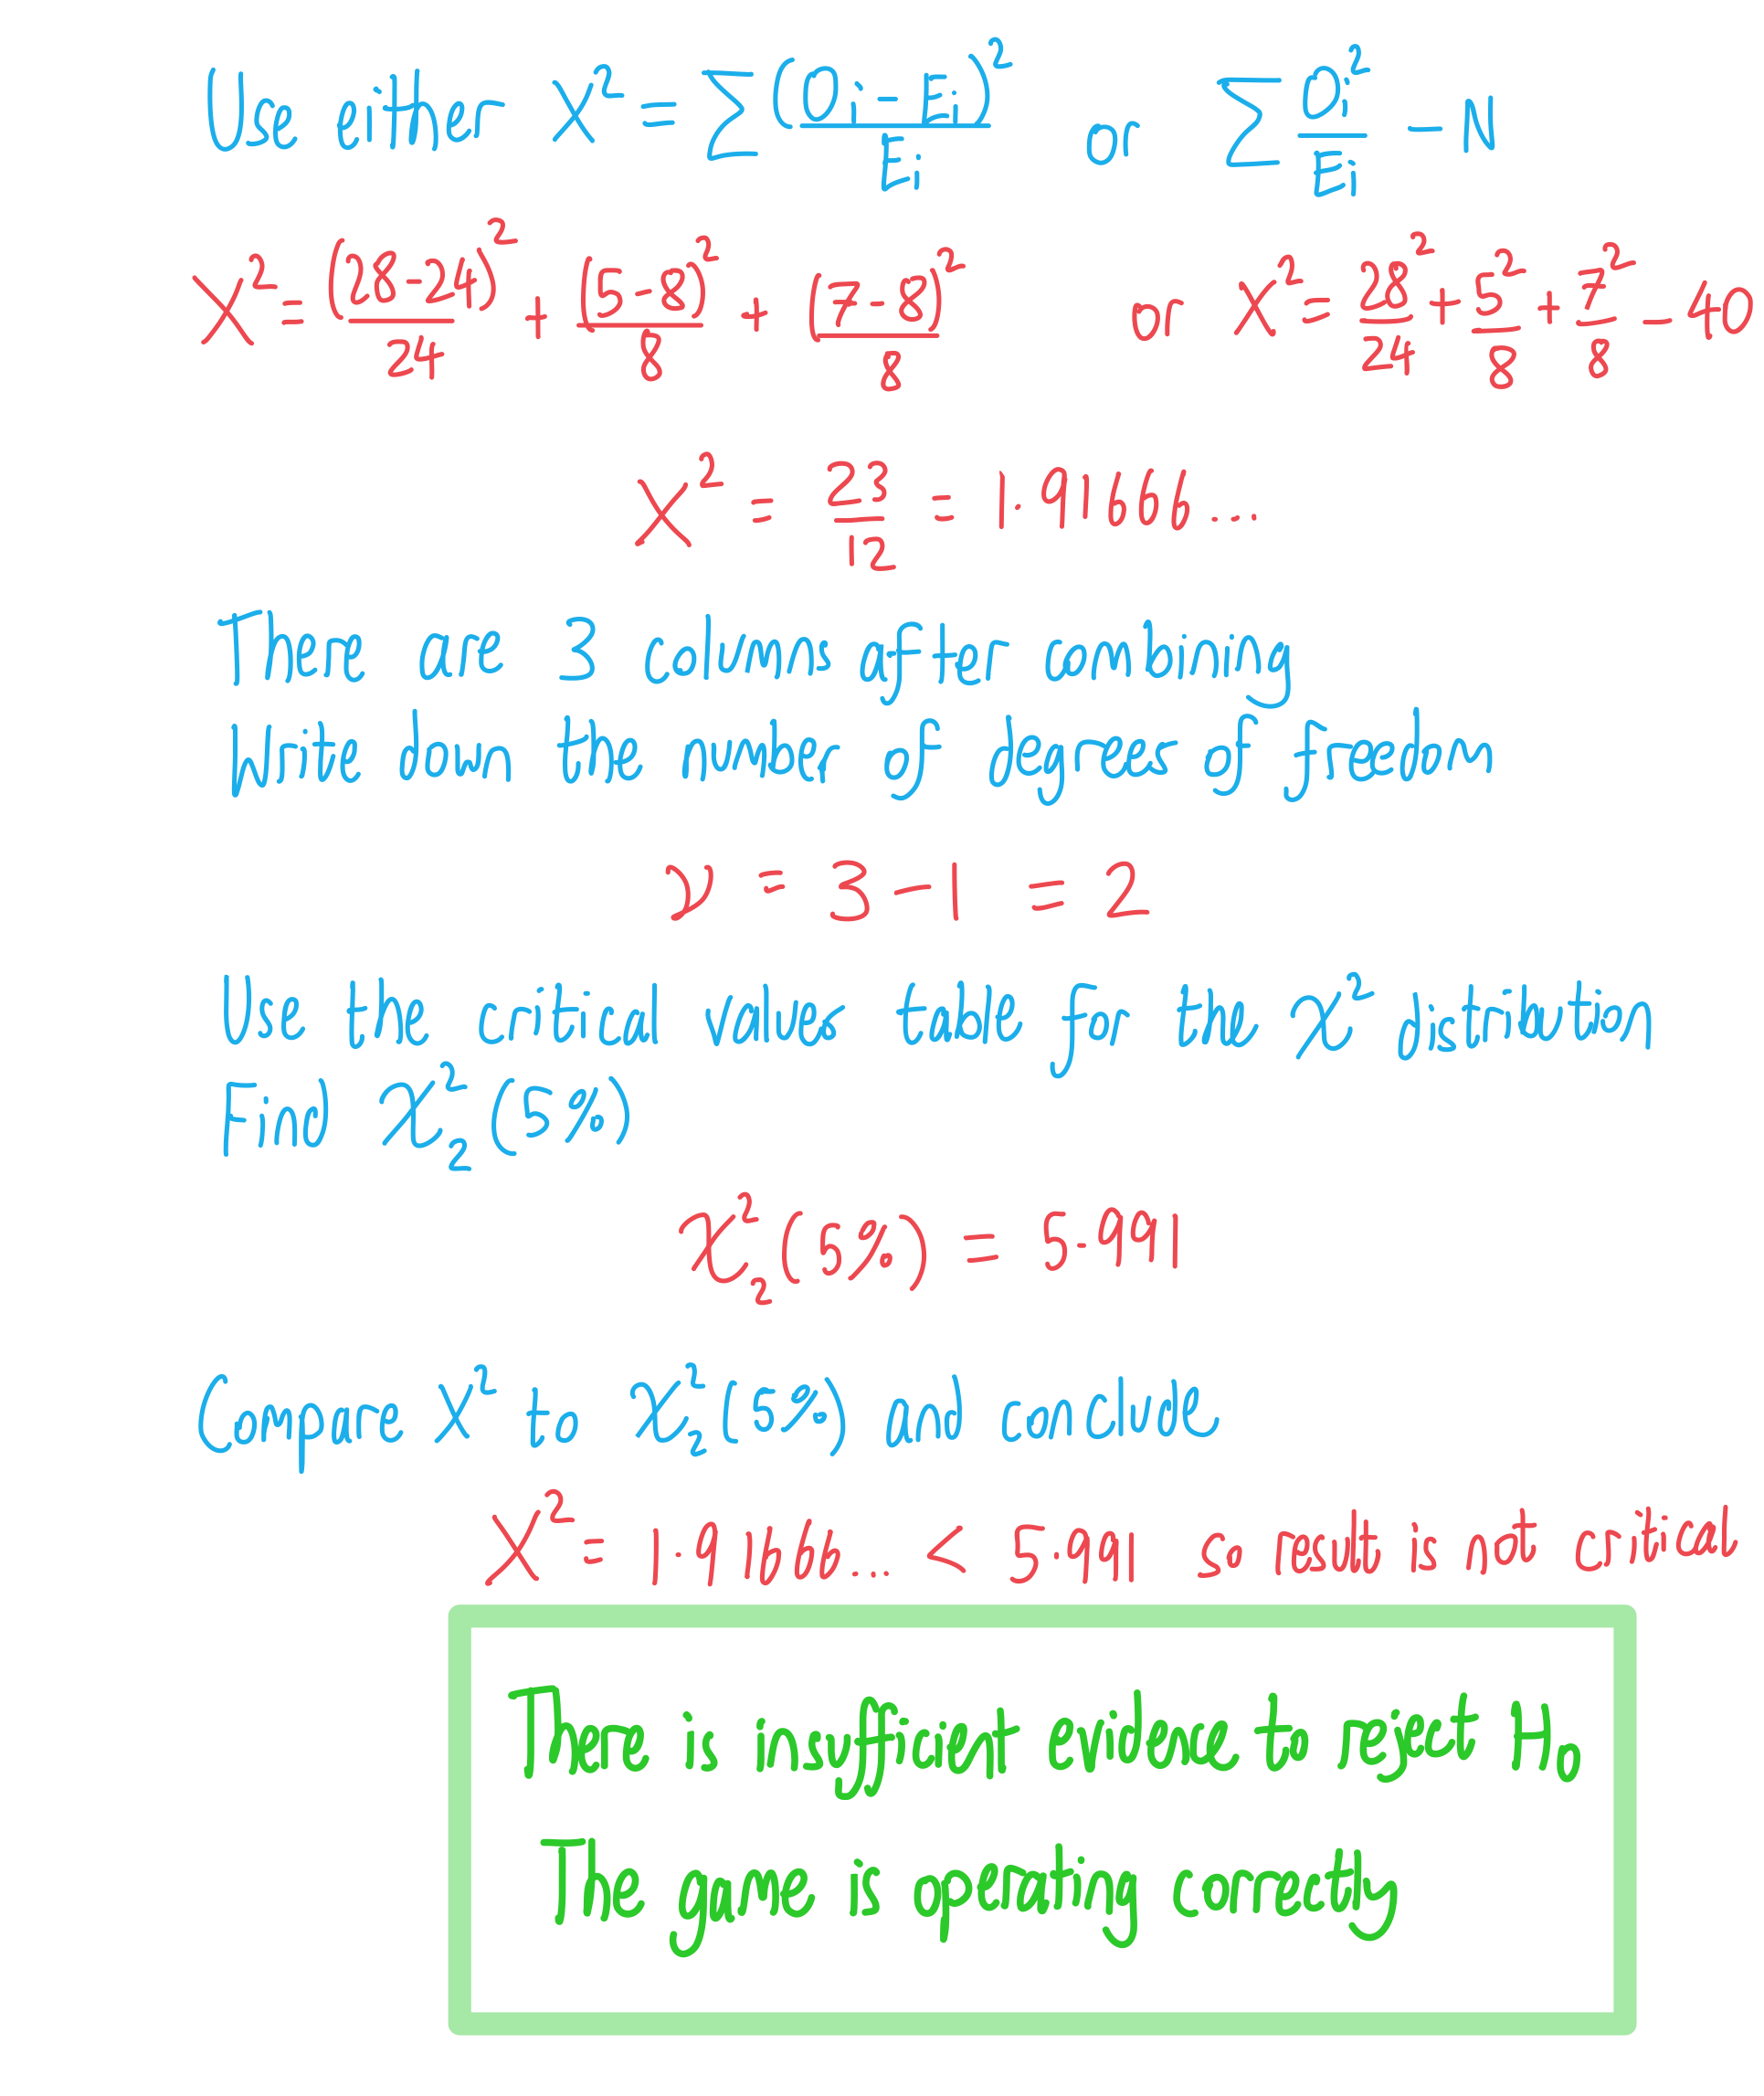 Use either X² = Σ (Oᵢ - Eᵢ)² / Eᵢ or Σ Oᵢ² / Eᵢ - N
X² = (28-24)² / 24 + (5-8)² / 8 + (7-8)² / 8 or X² = 28² / 24 + 5² / 8 + 7² / 8 - 40
X² = 23 / 12 = 1.9166...
There are 3 columns after combining
Write down the number of degrees of freedom
ν = 3 - 1 = 2
Use the critical values table for the χ² distribution
Find χ²₂ (5%)
χ²₂ (5%) = 5.991
Compare X² to χ²₂ (5%) and conclude
X² = 1.9166... < 5.991 so result is not critical
There is insufficient evidence to reject H₀
The game is operating correctly